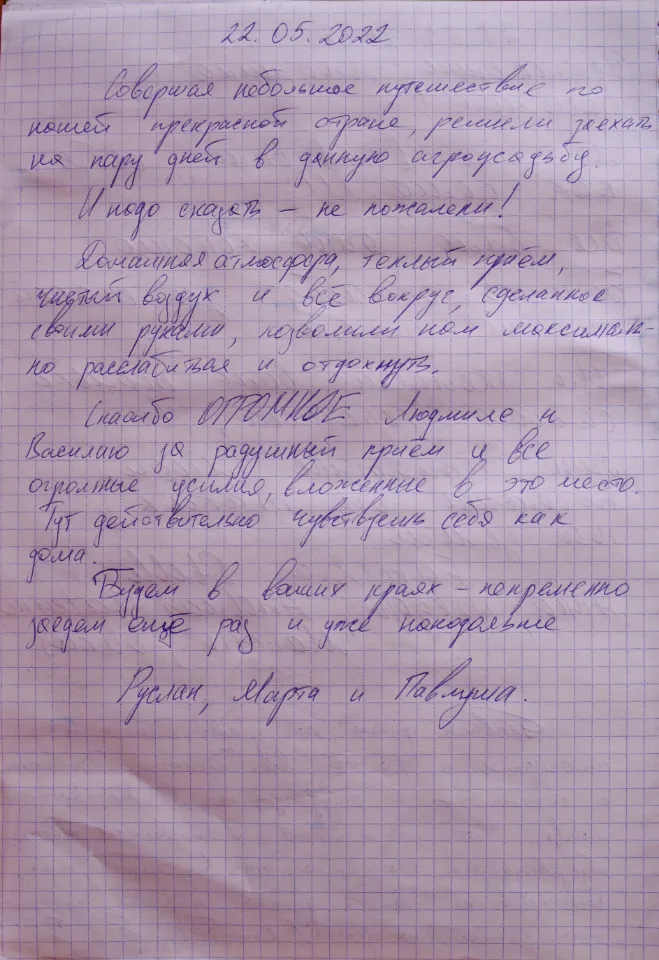 22.05.2022
Совершая небольшое путешествие по
нашей прекрасной стране, решили заехать
на пару дней в данную агроусадьбу.
И надо сказать – не пожалели!
Домашняя атмосфера, теплый приём,
чистый воздух и всё вокруг, сделанное
своими руками, позволили нам максималь-
но расслабиться и отдохнуть.
Спасибо ОГРОМНОЕ Людмиле и
Василию за радушный приём и все
огромные усилия, вложенные в это место.
Тут действительно чувствуешь себя как
дома.
Будем в ваших краях – непременно
заедем ещё раз и уже поподольше
Руслан, Марта и